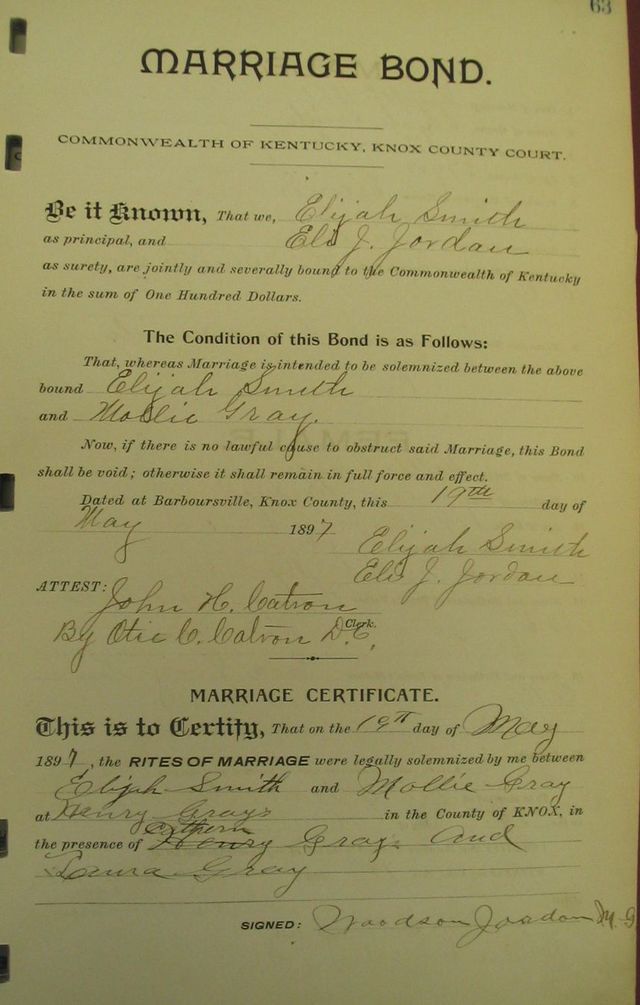 63
MARRIAGE BOND.
COMMONWEALTH OF KENTUCKY, KNOX COUNTY COURT.
Be it Known, That we, Elijah Smith
as principal, and Eli J. Jordan
as surety, are jointly and severally bound to the Commonwealth of Kentucky
in the sum of One Hundred Dollars.
The Condition of this Bond is as Follows:
That, whereas Marriage is intended to be solemnized between the above
bound Elijah Smith
and Mollie Gray.
Now, if there is no lawful cause to obstruct said Marriage, this Bond
shall be void; otherwise it shall remain in full force and effect.
Dated at Barboursville, Knox County, this 19th day of
May 1897
Elijah Smith
Eli J. Jordan
ATTEST:
John H. Catron
Clerk.
By Otie C. Catron D.C.
MARRIAGE CERTIFICATE.
This is to Certify, That on the 19th day of May
1897, the RITES OF MARRIAGE were legally solemnized by me between
Elijah Smith and Mollie Gray
at Henry Grays in the County of KNOX, in
the presence of Henry Gray. And
Laura Gray
SIGNED: Woodson Jordon M. G